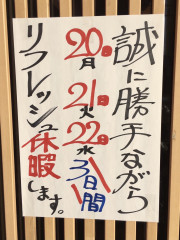 誠に勝手ながら
20日月
21日火
22日水
3日間
リフレッシュ休暇
します。